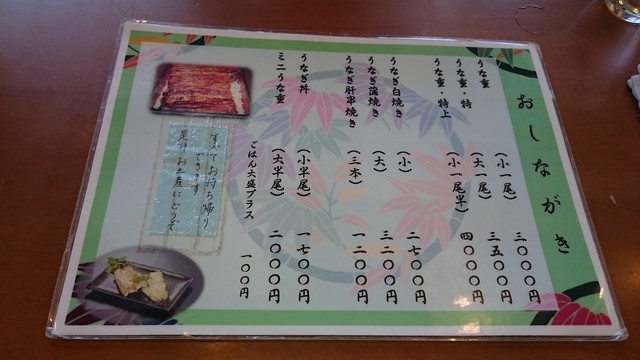 おしながき
うな重 (小一尾) 三〇〇〇円
うな重・特 (大一尾) 三五〇〇円
うな重・特上 (小一尾半) 四〇〇〇円
うなぎ白焼き (小) 二七〇〇円
うなぎ蒲焼き (大) 三二〇〇円
うなぎ肝串焼き (三本) 一二〇〇円
うなぎ丼 (小半尾) 一七〇〇円
ミニうな重 (大半尾) 二〇〇〇円
ごはん大盛プラス 一〇〇円
すべてお持ち帰り
できます
是非お土産にどうぞ